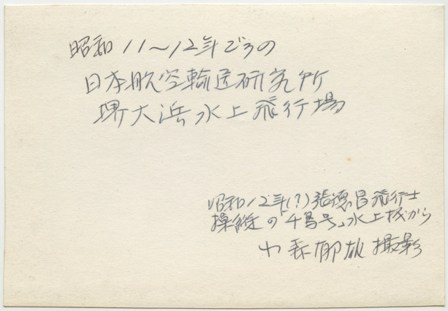 昭和11～12年ごろの
日本航空輸送研究所
堺大浜水上飛行場
昭和12年(?)張徳昌飛行士
操縦の「千鳥号」水上機から
小森郁雄撮影